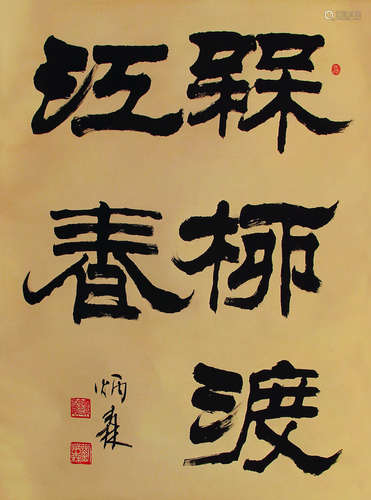 槑柳渡
江春
炳森